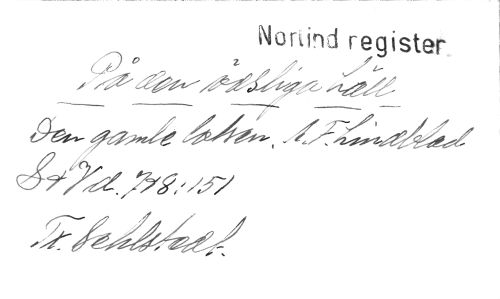 Norlind register.
På den ödsliga häll
Den gamle lotsen. A.F. Lindblad
S & V d. 718:151
Tx. Sehlstedt.